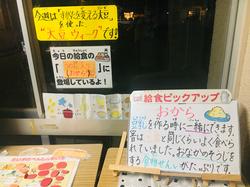 今週は"すがたを変える大豆"
を使った
"大豆ウィーク"です!!
今日の給食の
(おから)
に
登場しているよ!
給食ピックアップ
おから
豆乳を作る時に一緒にできます。
昔は と同じくらいよく食べら
れていました。おなかのそうじを
する食物せんい がたっぷりです。